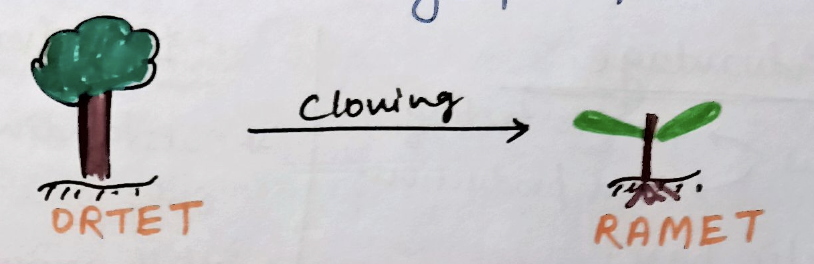 Cloning
ORTET
RAMET